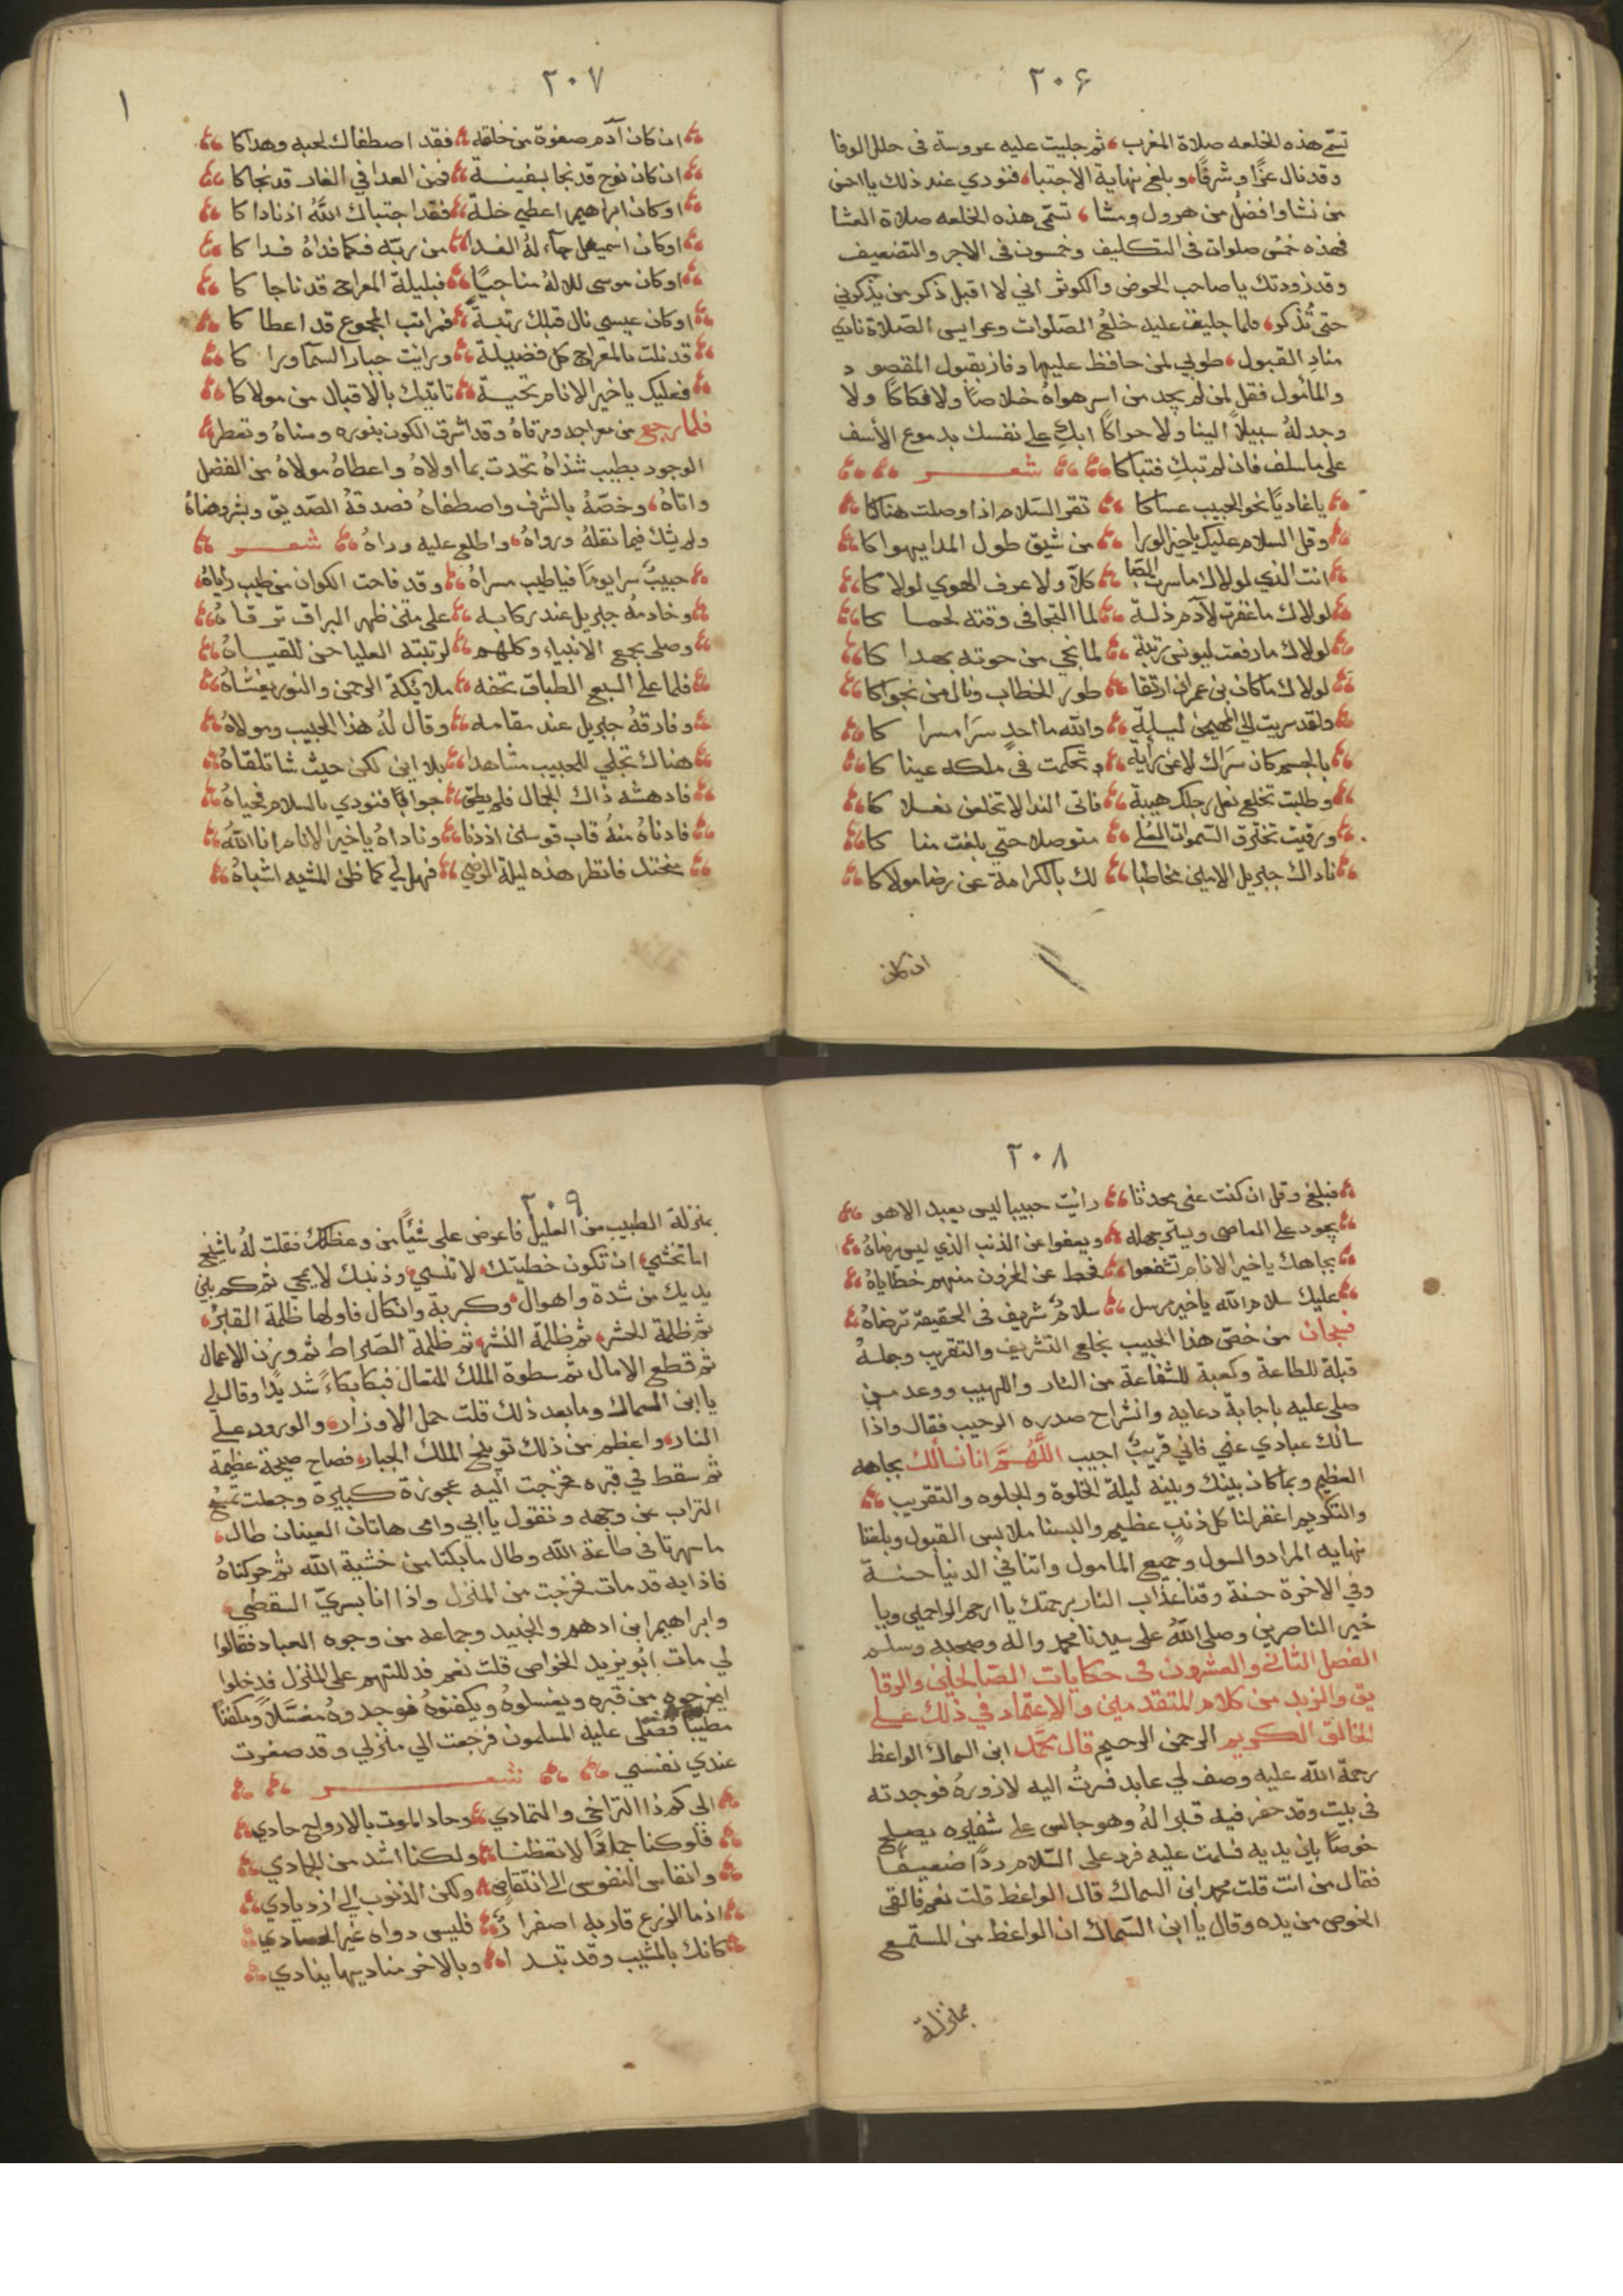 ٢٠٦
تسمى هذه الخلعه صلاة المغرب، ثم جليت عليه عروسة فى حلل الوفا
وقد نال عزا وشرفا، وبلغ نهاية الاجتبا، فنودي عند ذلك يا احسن
من نشا وافضل من هرول ومشا، تسمى هذه الخلعه صلاة العشا
فهذه خمس صلوات فى التكليف وخمسون فى الاجر والتضعيف
وقد زودتك يا صاحب الحوض والكوثر انى لا اقبل ذكر من يذكرني
حتى تُذكر، فلما جليت عليه خلع الصلوات وعرايس الصلاة نادي
منادِ القبول، طوبي لمن حافظ عليها وفاز بقبول المقصود
والمأمول فقل لمن لم يجد من اسر هواهُ خلاصًا ولا فكاكًا ولا
وجد لهُ سبيلاً الينا ولا حراكًا ابكِ على نفسك بدموع الأسف
على ما سلف فان لم تبكِ فتباكا شعر
يا غاديًا نحو الحبيب عساكا تقر السلام اذا وصلت هناكا
وقل السلام عليك يا خير الورا من شيق طول المدا يهواكا
انت الذي لولاك ما سرت الصبا كلا ولا عرف الهوي لولاكا
لولاك ما غفرت لآدم ذلة لما التجا فى وقته لحماكا
لولاك ما رفعت ليونس رتبة لما نجي من حوته بهداكا
لولاك ما كان بن عمران ارتقا طور الخطاب ونال من نجواكا
ولقد سريت الى المهيمن ليلة والله ما احدٍ سرَا مسراكا
بالجسم كان سراك لا عن رايه وتحكمت فى ملكه عيناكا
وطلبت تخلع نعل رجلك هيبة فاتى الندا لا تخلعن نعلاكا
ورقيت تخترق السموات العُلى متوصلا حتى بلغت مناكا
ناداك جبريل الامين مخاطبا لك بالكرامة عن رضا مولاكا
ان كان
٢٠٧
ان كان آدم صفوة من خلقه فقد اصطفاك لحبه وهداكا
ان كان نوح قد نجا بسفينة فمن العدا في الغار قد نجاكا
او كان ابراهيم اعطي خلة فقد اجتباك اللّٰهُ اذ ناداكا
او كان اسمعيل جآء لهُ الفدا من ربّه فكما فداهُ فداكا
او كان موسى للالهُ مناجيًا فبليلة المعراج قد ناجاكا
او كان عيسى نال قبلك رتبة فمراتب المجموع قد اعطاكا
قد نلت بالمعراج كل فضيلة ورايت جبار السما وراكا
فعليك يا خير الانام تحية تاتيك بالاقبال من مولاكا
فلما رجع من معراجه ومرقاهُ وقد اشرق الكون بنوره وسناهُ وتعطر
الوجود بطيب شذاهُ تحدث بما اولاهُ واعطاهُ مولاهُ من الفضل
واتاهُ، وخصّهُ بالشرف واصطفاهُ فصدقهُ الصديق وبشر
ولم يشك فيما نقلهُ ورواهُ، واطلع عليه وراهُ شعر
حبيبٌ سرا يومًا فيا طيب مسراهُ وقد فاحت الكوان من طيب رياهُ
وخادمهُ جبريل عند ركابه على متن ظهر البراق ترقاهُ
وصلى بجمع الانبياء وكلهم لرتبته العليا حن للقياهُ
فلما على السبع الطباق تحفه ملائكة الرحمن والنور يغشاهُ
وفارقهُ جبريل عند مقامه وقال لهُ هذا الحبيب ومولاهُ
هناك تجلي للحبيب مشاهدا بلا اين لكن حيث شا تلقاهُ
فادهشه ذاك الجمال فلم يطق جوابًا فنودي بالسلام فحياهُ
فادناهُ منهُ قاب قوسين اذ دنا وناداهُ يا خير الانام انا اللّٰهُ
منحتك فانظر هذه ليلة الرضي فهل لي كما ظن المشبه اشباهُ
٢٠٨
فبلغ وقل ان كنت عني محدثا رايت حبيبا ليس يعبد الاهو
يجود على العاصى ويستر جهله ويعفوا عن الذنب الذي ليس يرضاهُ
بجاهك يا خير الانام تشفعوا فحط عن المحزون منهم خطاياهُ
عليك سلام الله يا خير مرسل سلامٌ شريف فى الحقيقة ترضاهُ
فسبحان من خص هذا الحبيب بخلع التشريف والتقريب وجعلهُ
قبلة للطاعة وكعبة للشفاعة من النار واللهيب ووعد من
صلى عليه باجابة دعايه وانشراح صدره الرحيب فقال واذا
سالك عبادي عني فاني قريبٌ اجيب اللَّهُمَّ انا نسألك بجاهه
العظيم وبما كان بينك وبينه ليلة الخلوة والجلوه والتقريب
والتكريم اغفر لنا كل ذنبٍ عظيم والبسنا ملابس القبول وبلغنا
نهايه المراد والسول وجميع المامول واتنا في الدنيا حسنة
وفي الاخرة حسنة وقنا عذاب النار برحمتك يا ارحم الراحمين ويا
خير الناصرين وصلى اللهُ على سيدنا محمد واله وصحبه وسلم
الفصل الثانى والعشرون فى حكايات الصالحين والرقا
يق والزبد من كلام المتقدمين والاعتماد في ذلك على
الخالق الكريم الرحمن الرحيم قال محمَّد ابن السماك الواعظ
رحمة الله عليه وصف لي عابد فسرتُ اليه لازورهُ فوجدته
فى بيت وقد حفر فيه قبرا لهُ وهو جالس على شفيره يصلح
خوصًا بين يديه فسلمت عليه فرد على السلام ردًا ضعيفًا
فقال من انت قلت محمد ابن السماك قال الواعظ قلت نعم فالقى
الخوص من يده وقال يا ابن السماك ان الواعظ من المستمع
بمنزلة
٢٠٩
بمنزلة الطبيب من العليل فاعرض على شئًا من وعظك فقلت لهُ يا شيخ
اما تخشي، ان تكون خطيتك، لا تنسي، وذنبك لا يمحي ثم كم بين
يديك من شدة واهوال، وكربة وانكال فاولها ظلمة القبر،
ثم ظلمة الحشر، ثم ظلمة النشر، ثم ظلمة الصراط ثم وزن الاعمال
ثم قطع الامال ثم سطوة الملك المتعال فبكا بكاءً شديدًا وقال لي
يا ابن السماك وما بعد ذلك قلت حمل الاوزار، والورود على
النار، واعظم من ذلك توبيخ الملك الجبار، فصاح صيحة عظيمة
ثم سقط في قبره فخرجت اليه عجوزة كبيرة وجعلت تمسح
التراب عن وجهه وتقول يا ابي وامي هاتان العينان طال
ما سهرتا فى طاعة الله وطال ما بكتا من خشية الله ثم حركتاهُ
فاذا به قد مات فخرجت من المنزل واذا انا بسريّ السقطي
وابراهيم ابن ادهم والجنيد وجماعه من وجوه العباد فقالوا
لي مات ابو يزيد الخواص قلت نعم فدللتهم على المنزل فدخلوا
ليخرجوه من قبره ويغسلوهُ ويكفنوهُ فوجدوهُ مغسَّلاً ومكفنًا
مطيبًا فصلى عليه المسلمون فرجعت الي منزلي وقد صغرت
عندي نفسي شعر
الى كم ذا التراخى والتمادي وحاد الموت بالارواح حادي
فلو كنا جمادًا لا تعظنا ولكنا اشد من الجمادي
وانفاس النفوس الى انتقاص ولكن الذنوب الي ازديادي
اذ ما الزرع قاربه اصفرارٌ فليس دواه غير الحصادي
كانك بالمشيب وقد تبدا وبالاخر مناديها ينادي